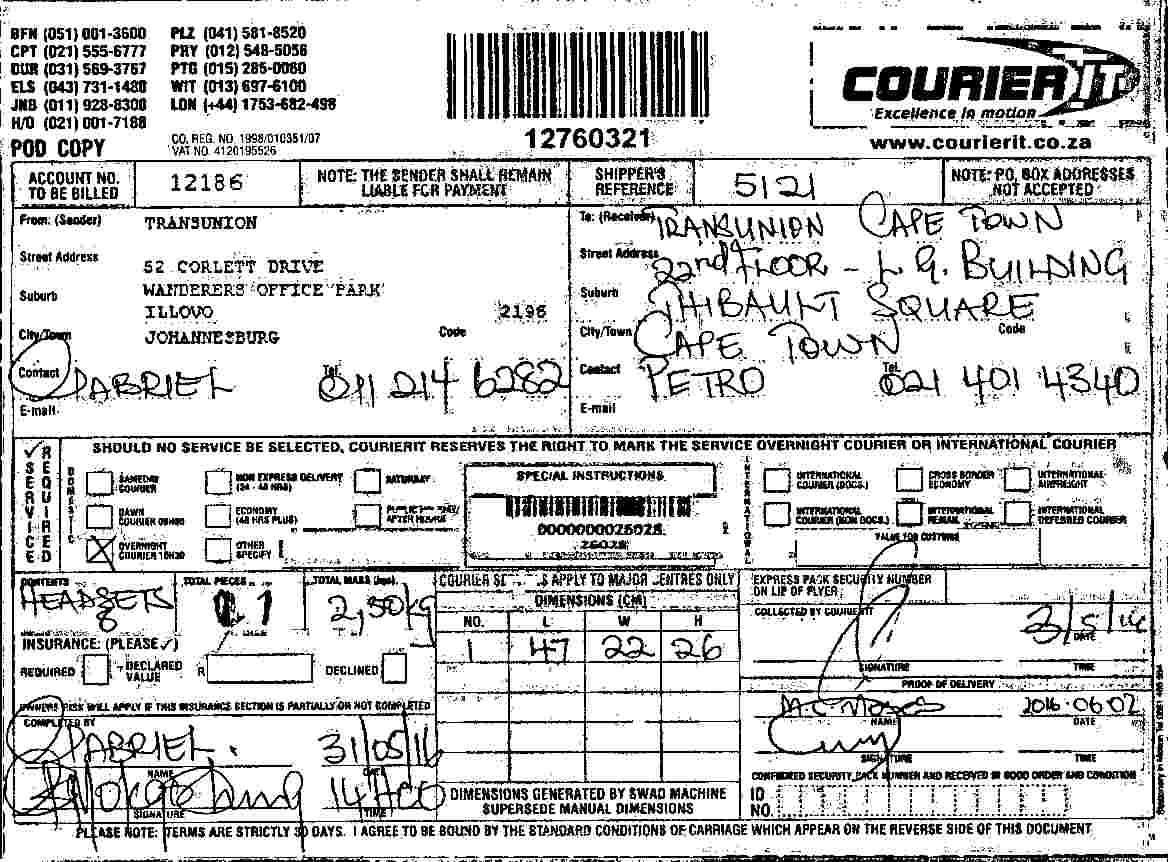 BFN (051) 001-3600 PLZ (041) 581-8520
CPT (021) 555-6777 PRY (012) 548-5056
DUR (031) 569-3767 PTG (015) 285-0060
ELS (043) 731-1480 WIT (013) 697-6100
JNB (011) 928-8300 LON (+44) 1753-682-498
H/O (021) 001-7188
POD COPY
CO. REG. NO. 1998/010351/07
VAT NO. 4120195526
12760321
COURIER IT
Excellence in motion
www.courierit.co.za
ACCOUNT NO. TO BE BILLED
12186
NOTE: THE SENDER SHALL REMAIN LIABLE FOR PAYMENT
SHIPPER'S REFERENCE
5121
NOTE: P.O. BOX ADDRESSES NOT ACCEPTED
From: (Sender) TRANSUNION
Street Address 52 CORLETT DRIVE
Suburb WANDERERS OFFICE PARK
ILLOVO 2196
City/Town JOHANNESBURG Code
Contact GABRIEL Tel. 011 214 6282
E-mail
To: (Receiver) TRANSUNION CAPE TOWN
Street Address 22nd FLOOR - L.G. BUILDING
Suburb THIBAULT SQUARE
City/Town CAPE TOWN Code
Contact PETRO Tel. 021 401 4340
E-mail
SERVICE REQUIRED
SHOULD NO SERVICE BE SELECTED, COURIERIT RESERVES THE RIGHT TO MARK THE SERVICE OVERNIGHT COURIER OR INTERNATIONAL COURIER
DOMESTIC
SAMEDAY COURIER
NON EXPRESS DELIVERY (24 - 48 HRS)
SATURDAY
DAWN COURIER 09H00
ECONOMY (48 HRS PLUS)
AFTER HOURS
OVERNIGHT COURIER 10H30
OTHER SPECIFY
SPECIAL INSTRUCTIONS
0000000026028
26028
INTERNATIONAL
INTERNATIONAL COURIER (DOCS.)
CROSS BORDER ECONOMY
INTERNATIONAL AIRFREIGHT
INTERNATIONAL COURIER (NON DOCS.)
INTERNATIONAL
INTERNATIONAL DEFERRED COURIER
VALUE FOR CUSTOMS
CONTENTS
HEADSETS
8
TOTAL PIECES
1
TOTAL MASS (kgs)
2,50kg
INSURANCE: (PLEASE ✓)
REQUIRED
DECLARED VALUE R
DECLINED
OWNERS RISK WILL APPLY IF THIS INSURANCE SECTION IS PARTIALLY OR NOT COMPLETED
COMPLETED BY
GABRIEL. 31/05/16
NAME DATE
14H00
SIGNATURE TIME
APPLY TO MAJOR CENTRES ONLY
DIMENSIONS (CM)
NO. L W H
1 47 22 26
DIMENSIONS GENERATED BY SWAD MACHINE SUPERSEDE MANUAL DIMENSIONS
EXPRESS PACK SECURITY NUMBER ON LIP OF FLYER
COLLECTED BY COURIERIT
DATE
SIGNATURE TIME
PROOF OF DELIVERY
2016.06.02
NAME DATE
SIGNATURE TIME
CONFIRMED SECURITY PACK NUMBER AND RECEIVED IN GOOD ORDER AND CONDITION
ID NO.
PLEASE NOTE: TERMS ARE STRICTLY 30 DAYS. I AGREE TO BE BOUND BY THE STANDARD CONDITIONS OF CARRIAGE WHICH APPEAR ON THE REVERSE SIDE OF THIS DOCUMENT